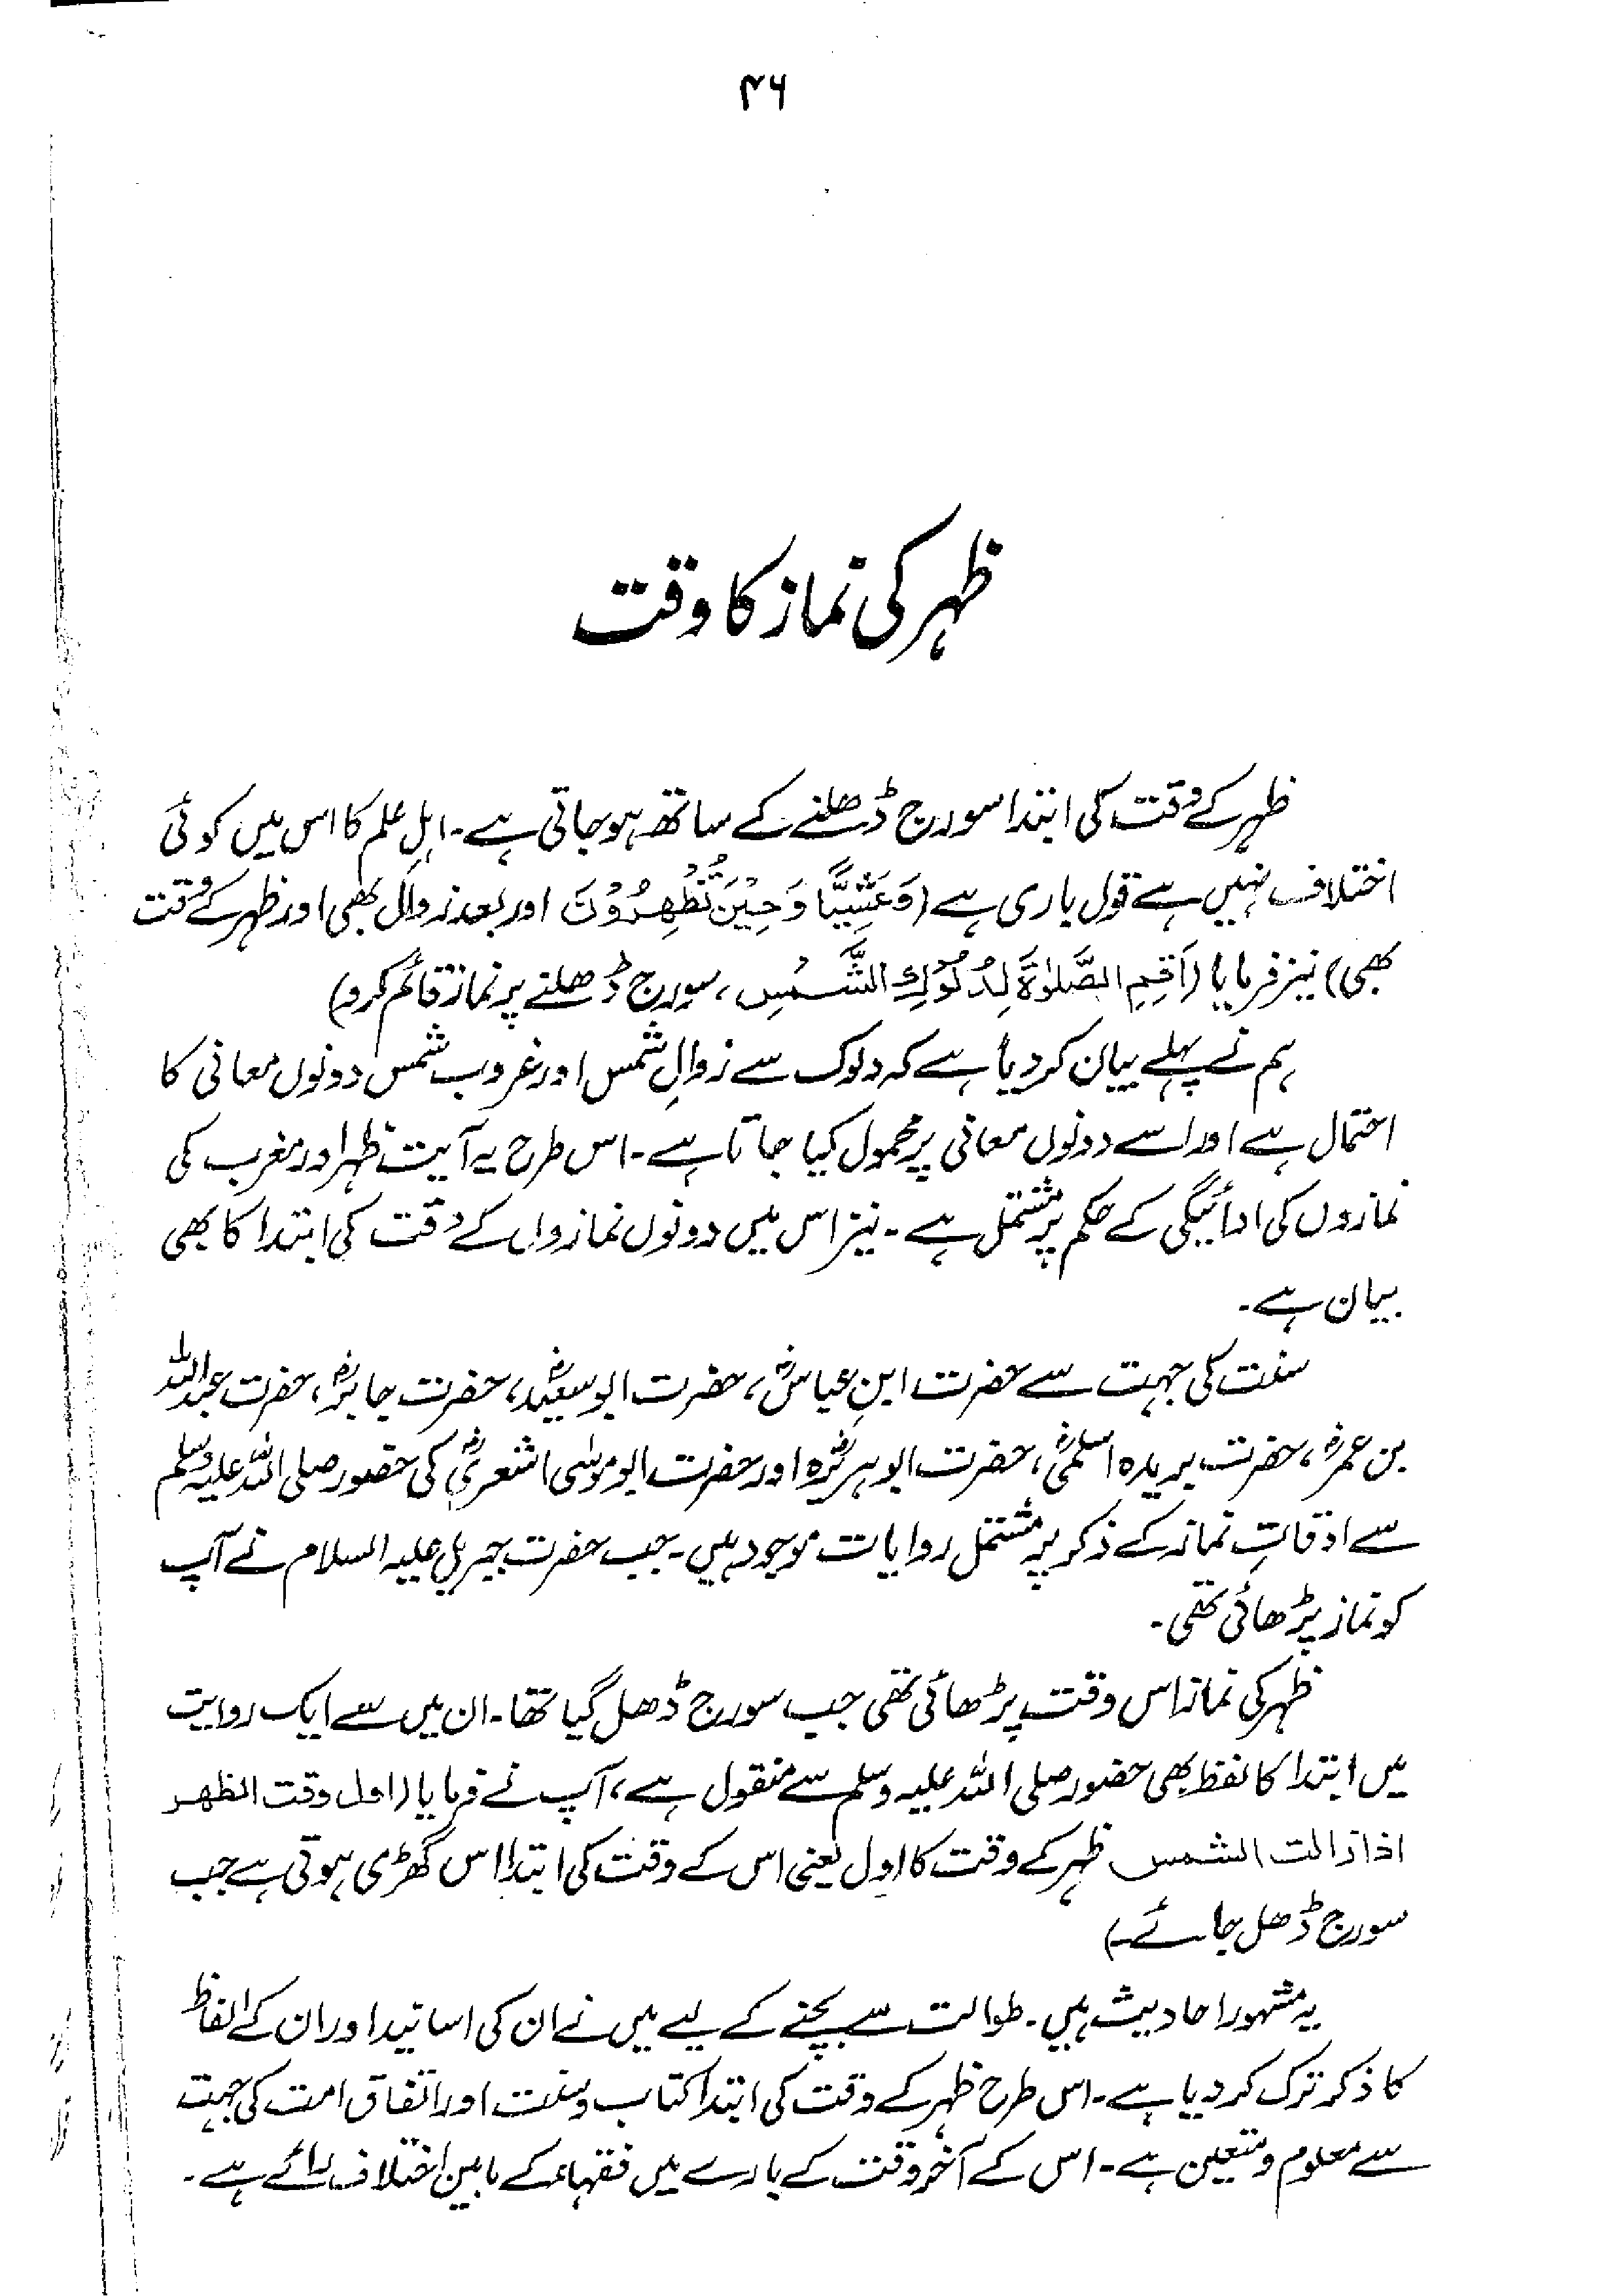 ۴۶
ظہر کی نماز کا وقت
ظہر کے وقت کی ابتدا سورج ڈھلنے کے ساتھ ہو جاتی ہے۔ اہلِ علم کا اس میں کوئی
اختلاف نہیں ہے قول باری ہے (وَعَشِيًّا وَحِيْنَ تُظْهِرُوْنَ اور بعد زوال بھی اور ظہر کے وقت
بھی) نیز فرمایا (اَقِمِ الصَّلٰوةَ لِدُلُوْكِ الشَّمْسِ، سورج ڈھلنے پر نماز قائم کرو)
ہم نے پہلے بیان کر دیا ہے کہ دلوک سے زوالِ شمس اور غروب شمس دونوں معانی کا
احتمال ہے اور اسے دونوں معانی پر محمول کیا جاتا ہے۔ اس طرح یہ آیت ظہر اور مغرب کی
نمازوں کی ادائیگی کے حکم پر مشتمل ہے۔ نیز اس میں دونوں نمازوں کے وقت کی ابتدا کا بھی
بیان ہے۔
سنت کی جہت سے حضرت ابنِ عباسؓ، حضرت ابو سعیدؓ، حضرت جابرؓ، حضرت عبداللہ
بن عمرؓ، حضرت بریدہ اسلمیؓ، حضرت ابو ہریرؓہ اور حضرت ابو موسٰی اشعریؓ کی حضور صلی اللہ علیہ وسلم
سے اوقاتِ نماز کے ذکر پر مشتمل روایات موجود ہیں۔ جب حضرت جبریل علیہ السلام نے آپ
کو نماز پڑھائی تھی۔
ظہر کی نماز اس وقت پڑھائی تھی جب سورج ڈھل گیا تھا۔ ان میں سے ایک روایت
میں ابتدا کا لفظ بھی حضور صلی اللہ علیہ وسلم سے منقول ہے، آپ نے فرمایا (اول وقت الظهر
اذا زالت الشمس ظہر کے وقت کا اول یعنی اس کے وقت کی ابتدا اس گھڑی ہوتی ہے جب
سورج ڈھل جائے۔)
یہ مشہور احادیث ہیں۔ طوالت سے بچنے کے لیے میں نے ان کی اسانید اور ان کے الفاظ
کا ذکر ترک کر دیا ہے۔ اس طرح ظہر کے وقت کی ابتدا کتاب و سنت اور اتفاق امت کی جہت
سے معلوم و متعین ہے۔ اس کے آخر وقت کے بارے میں فقہاء کے مابین اختلاف رائے ہے۔